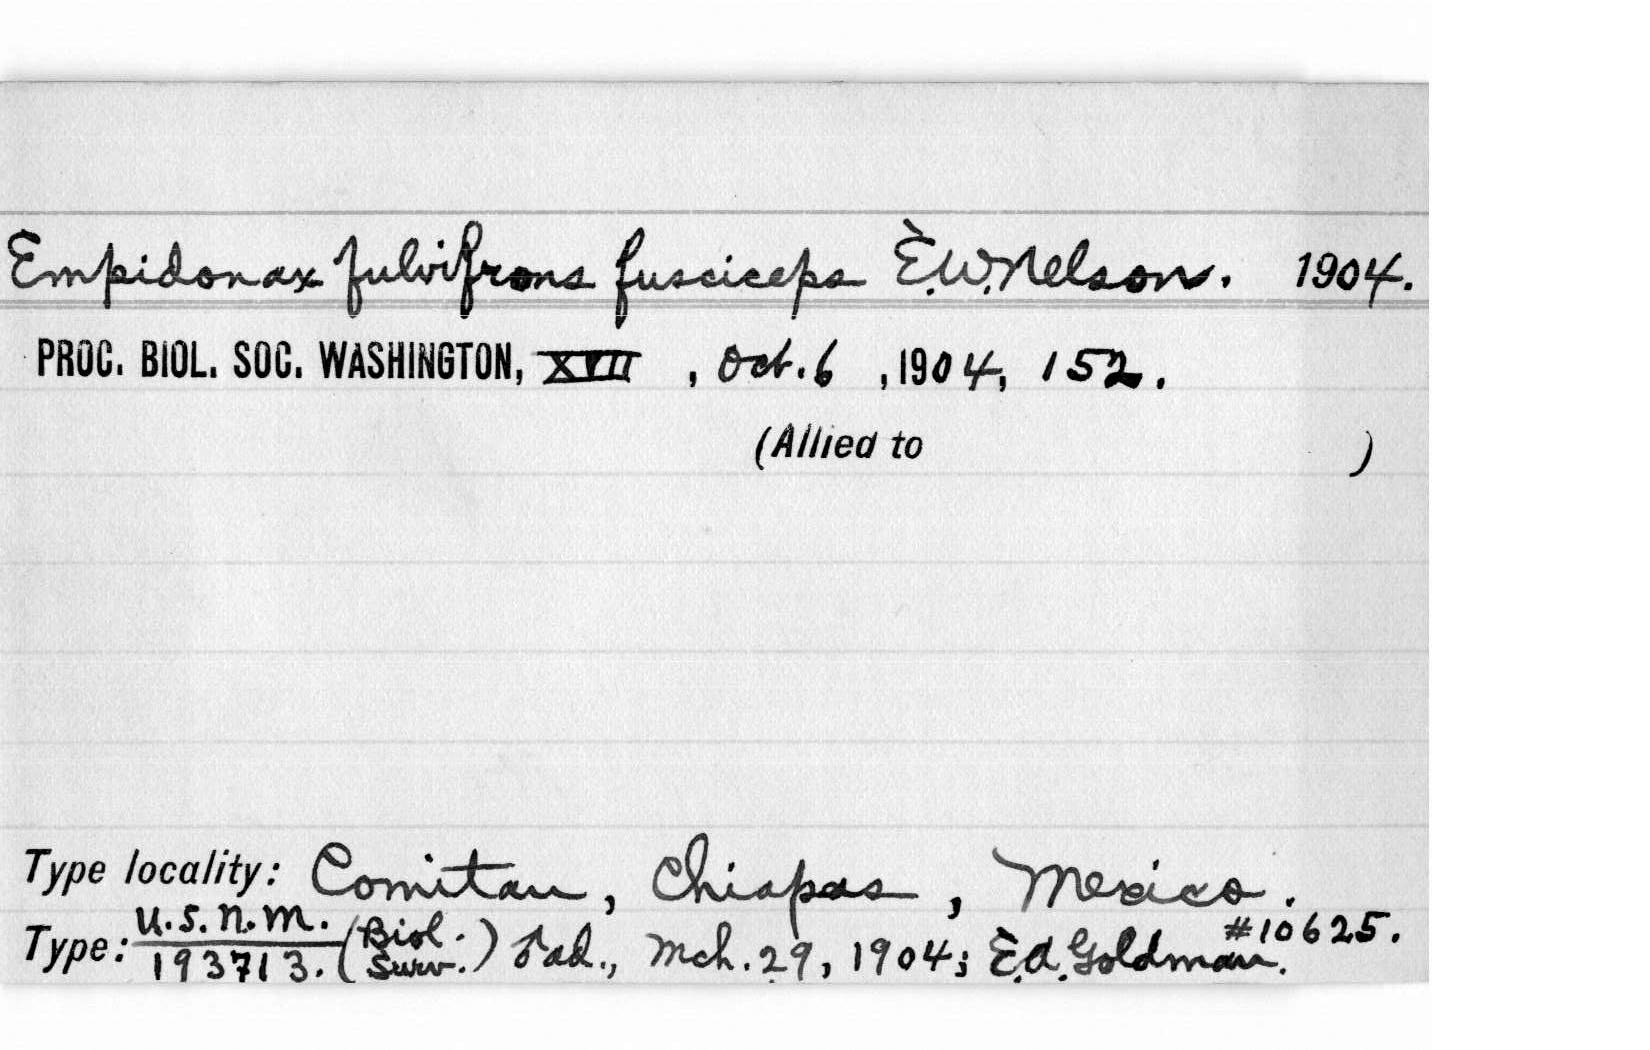 Empidonax fulvifrons fusciceps E.W. Nelson. 1904.
PROC. BIOL. SOC. WASHINGTON, XVII, Oct. 6, 1904, 152.
(Allied to )
Type locality: Comitan, Chiapas, Mexico.
U.S.N.M. (Biol. #10625.
Type: 193713. Surv.) ♂ ad., Mch. 29, 1904; E.A. Goldman.